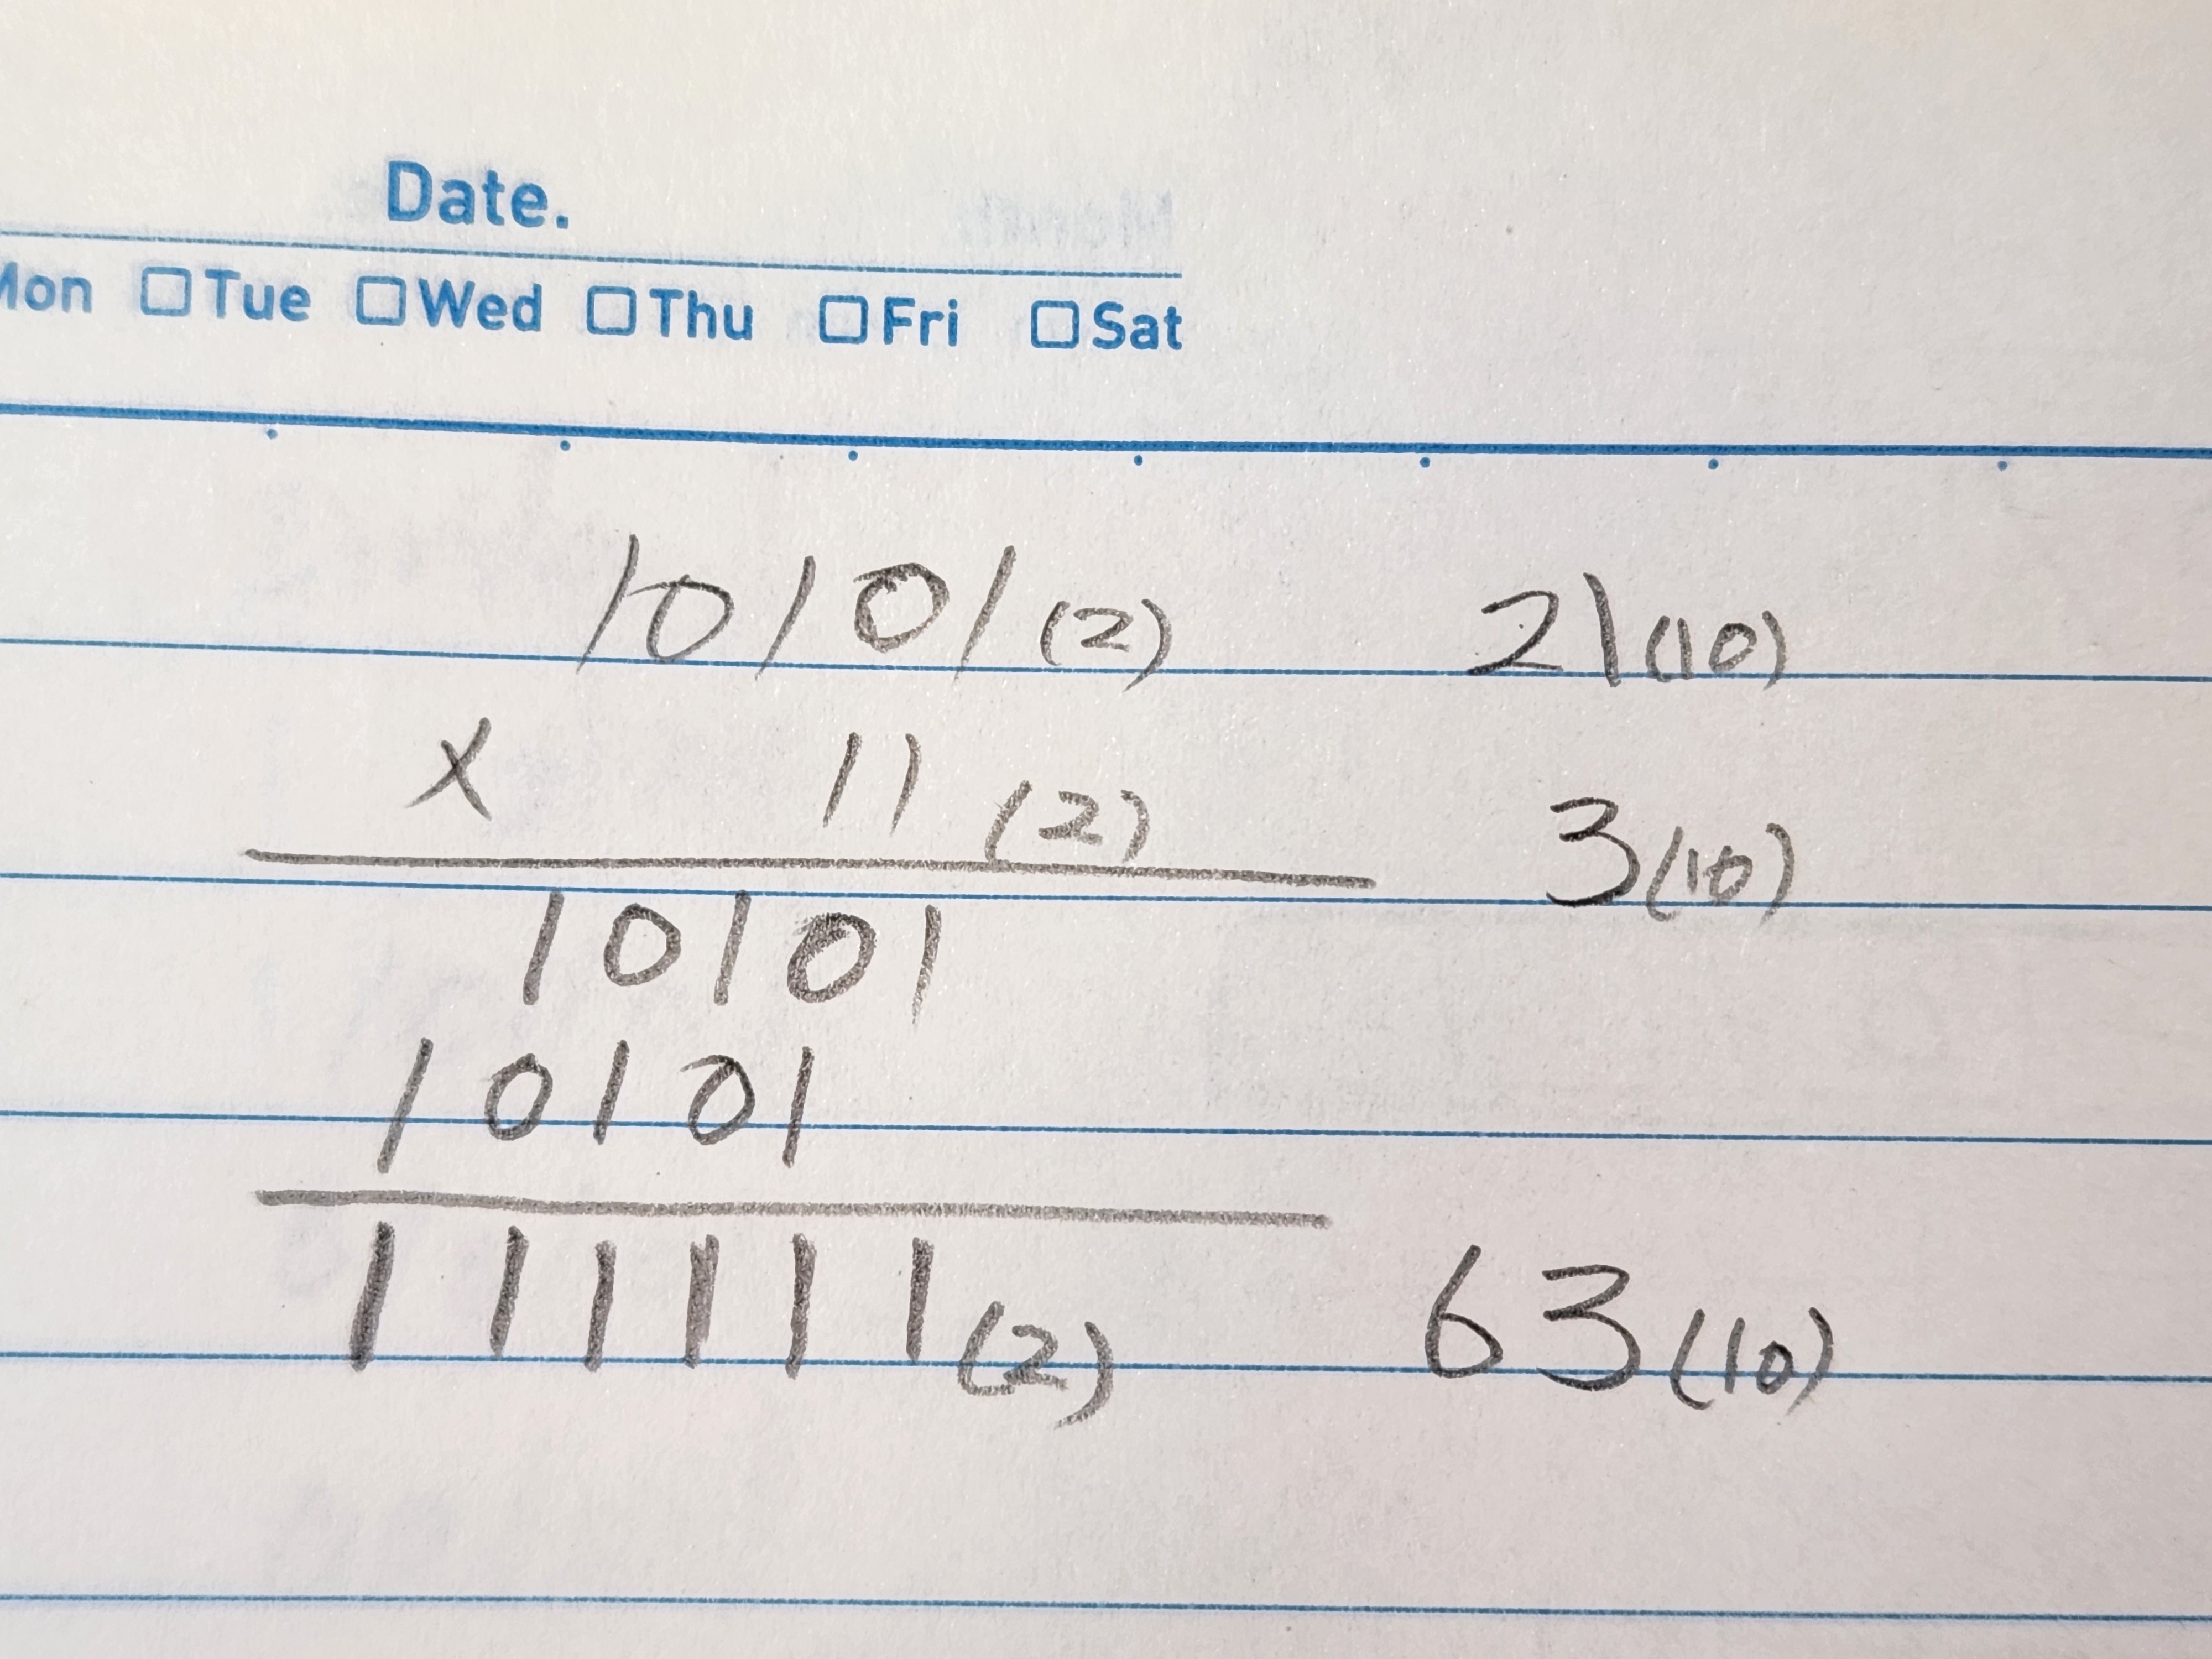 Date.
Mon □Tue □Wed □Thu □Fri □Sat
10101(2) 21(10)
x 11(2) 3(10)
10101
10101
111111(2) 63(10)